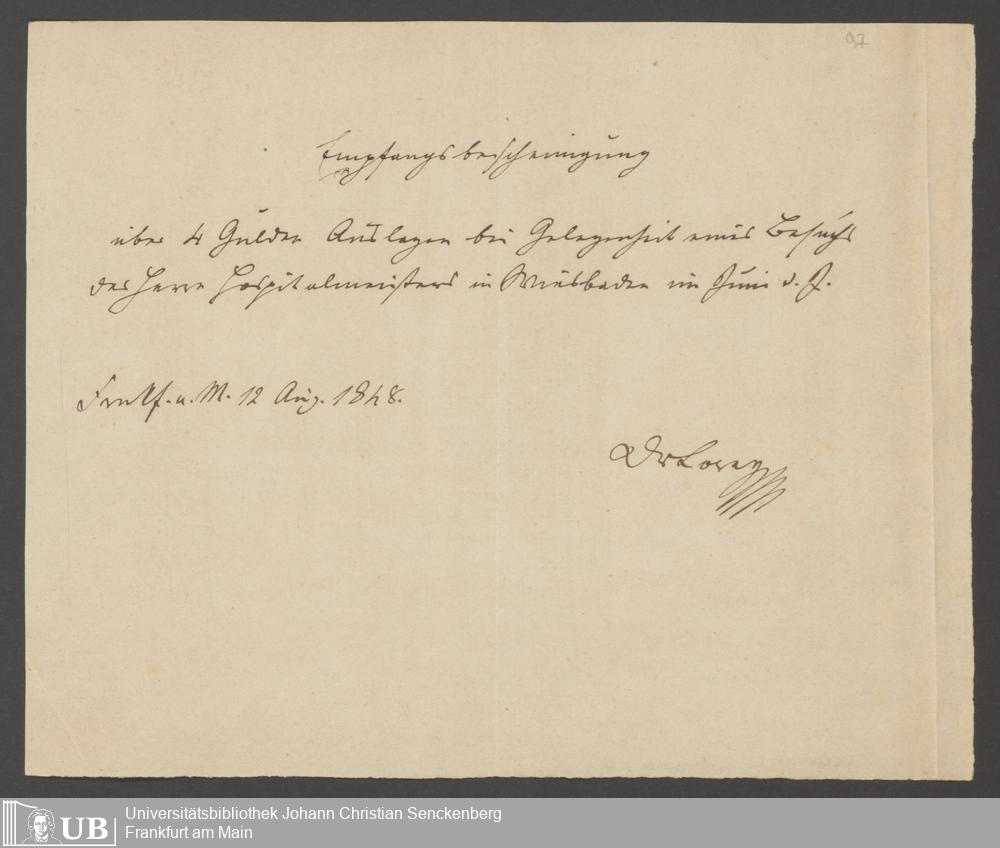 97
Empfangsbescheinigung
über 4 Gulden Auslagen bei Gelegenheit eines Besuchs
des Herrn Hospitalmeisters in Wiesbaden im Juni d. J.
Frnkf. a. M. 12 Aug. 1848.
Dr Lorey
UB Universitätsbibliothek Johann Christian Senckenberg
Frankfurt am Main